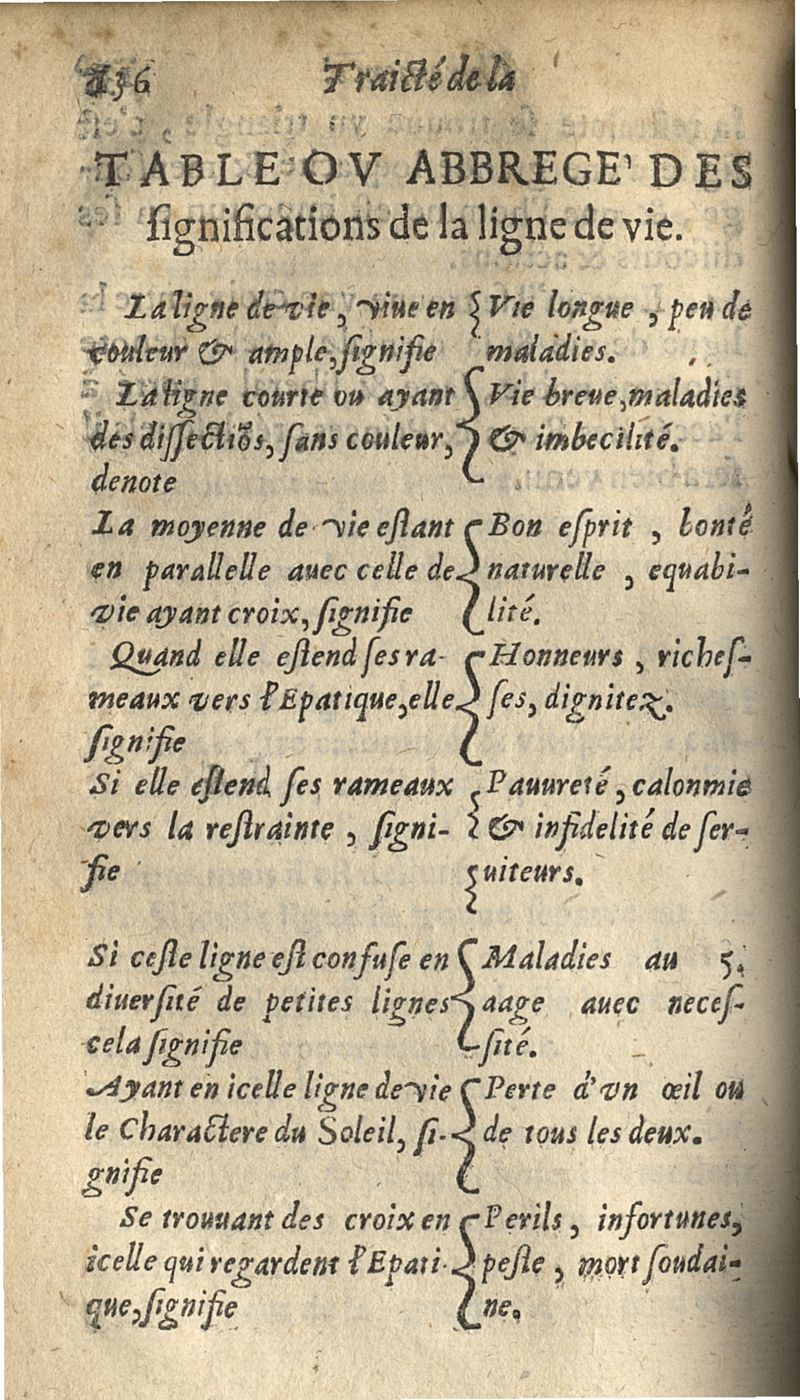 156 Traicté de la
TABLE OV ABBREGE' DES
significations de la ligne de vie.
La ligne de vie, viue en { Vie longue, peu de
couleur & ample, signifie maladies.
La ligne courte ou ayant { Vie breue, maladies
des dissectiõs, sans couleur, & imbecilité.
denote
La moyenne de vie estant { Bon esprit, bonté
en parallelle auec celle de naturelle, equabi-
vie ayant croix, signifie lité.
Quand elle estend ses ra- { Honneurs, riches-
meaux vers l'Epatique, elle ses, dignitez.
signifie
Si elle estend ses rameaux { Pauureté, calonmie
vers la restrainte, signi- & infidelité de ser-
fie uiteurs.
Si ceste ligne est confuse en { Maladies au 5.
diuersité de petites lignes aage auec neces-
cela signifie sité.
Ayant en icelle ligne de vie { Perte d'vn œil ou
le Charactere du Soleil, si- de tous les deux.
gnifie
Se trouuant des croix en { Perils, infortunes,
icelle qui regardent l'Epati- peste, mort soudai-
que, signifie ne.